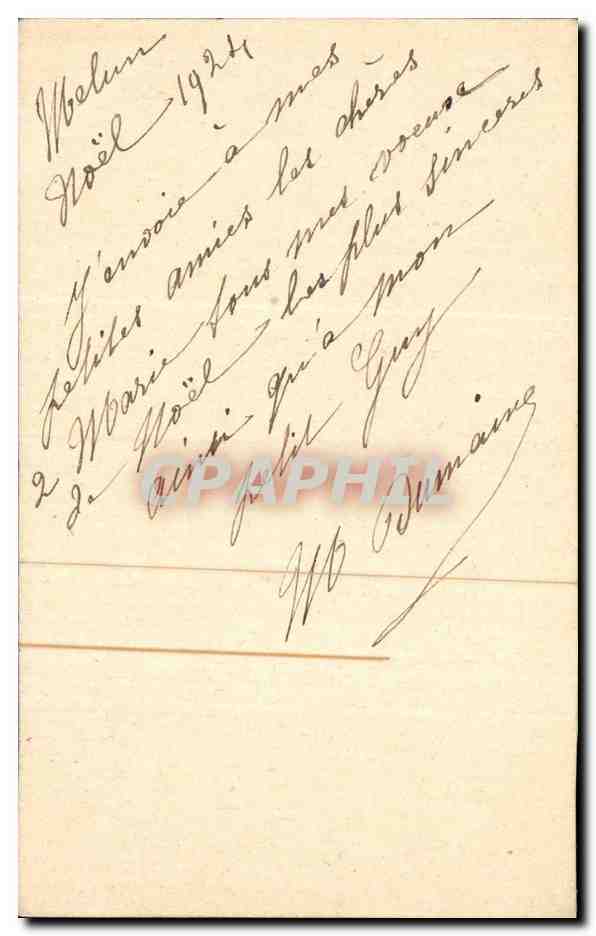 Melun
Noël 1924
J'envoie à mes
petites amies les chères
2 Marie tous mes voeux
de Noël les plus sincères
ainsi qu'à mon
petit Guy
M Dumaine
CPAPHIL